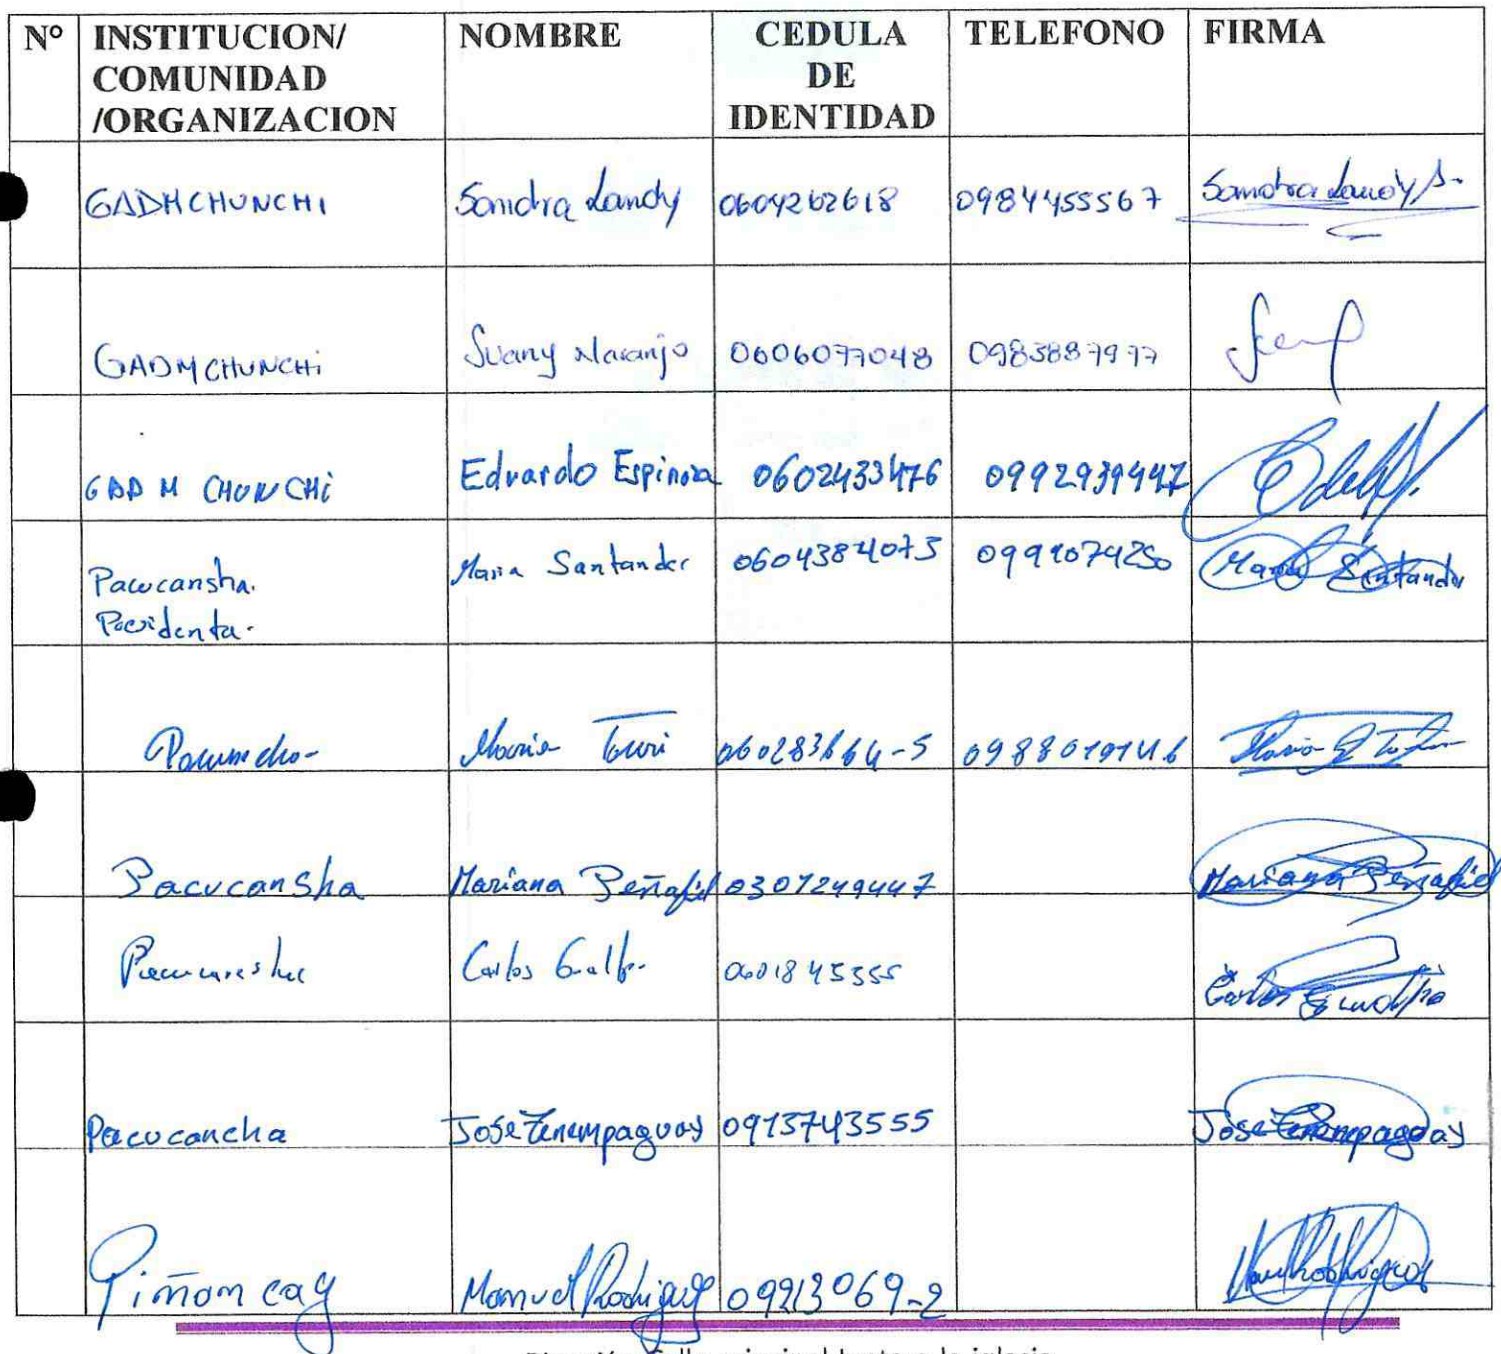 N° INSTITUCION/ COMUNIDAD /ORGANIZACION NOMBRE CEDULA DE IDENTIDAD TELEFONO FIRMA
GADMCHUNCHI Sandra Landy 0604262618 0984455567 Sandra Landy S.
GADMCHUNCHi Suany Naranjo 0606077048 0983887977
GAD M CHUNCHi Eduardo Espinoza 0602433476 0992939447
Pacucansha. Maria Santander 0604384073 0991074250 Maria Santander
Presidenta.
Maria Turi 060283664-5 0988019146
Pacucansha Mariana Peñafiel 0301249447 Mariana Peñafiel
Carlos 0601845355 Carlos
Pacucancha Jose Tenempaguay 0913743555 Jose Tenempaguay
Piñancay Manuel Rodriguez 09213069-2